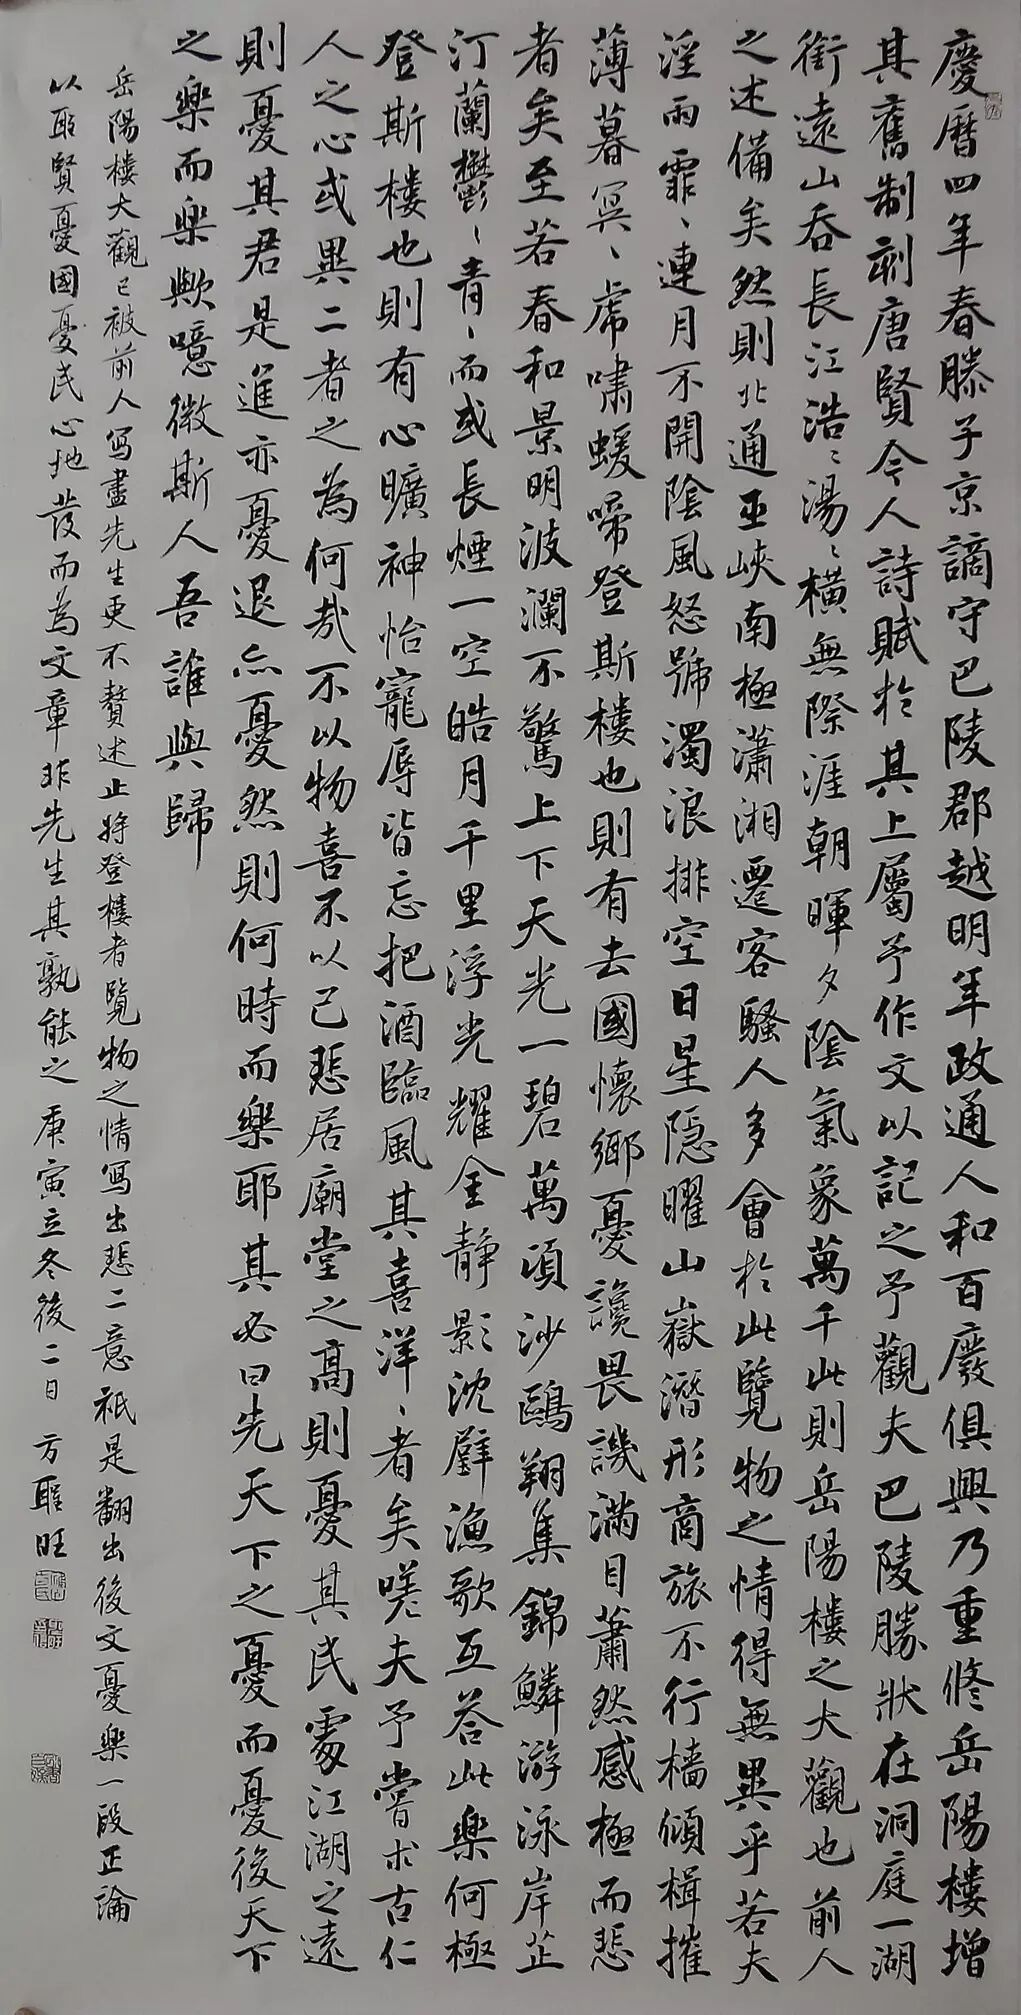 慶曆四年春滕子京謫守巴陵郡越明年政通人和百廢俱興乃重修岳陽樓增
其舊制刻唐賢今人詩賦於其上屬予作文以記之予觀夫巴陵勝狀在洞庭一湖
銜遠山吞長江浩〻湯〻橫無際涯朝暉夕陰氣象萬千此則岳陽樓之大觀也前人
之述備矣然則北通巫峽南極瀟湘遷客騷人多會於此覽物之情得無異乎若夫
淫雨霏〻連月不開陰風怒號濁浪排空日星隱曜山嶽潛形商旅不行檣傾楫摧
薄暮冥〻虎嘯蝯啼登斯樓也則有去國懷鄉憂讒畏譏滿目蕭然感極而悲
者矣至若春和景明波瀾不驚上下天光一碧萬頃沙鷗翔集錦鱗游泳岸芷
汀蘭鬱〻青〻而或長煙一空皓月千里浮光耀金靜影沈璧漁歌互答此樂何極
登斯樓也則有心曠神怡寵辱皆忘把酒臨風其喜洋〻者矣嗟夫予嘗求古仁
人之心或異二者之為何哉不以物喜不以己悲居廟堂之高則憂其民處江湖之遠
則憂其君是進亦憂退亦憂然則何時而樂耶其必曰先天下之憂而憂後天下
之樂而樂歟噫微斯人吾誰與歸
岳陽樓大觀已被前人寫盡先生更不贅述止將登樓者覽物之情寫出悲二意祇是翻出後文憂樂一段正論
以聖賢憂國憂民心地發而為文章非先生其孰能之 庚寅立冬後二日 方聖旺